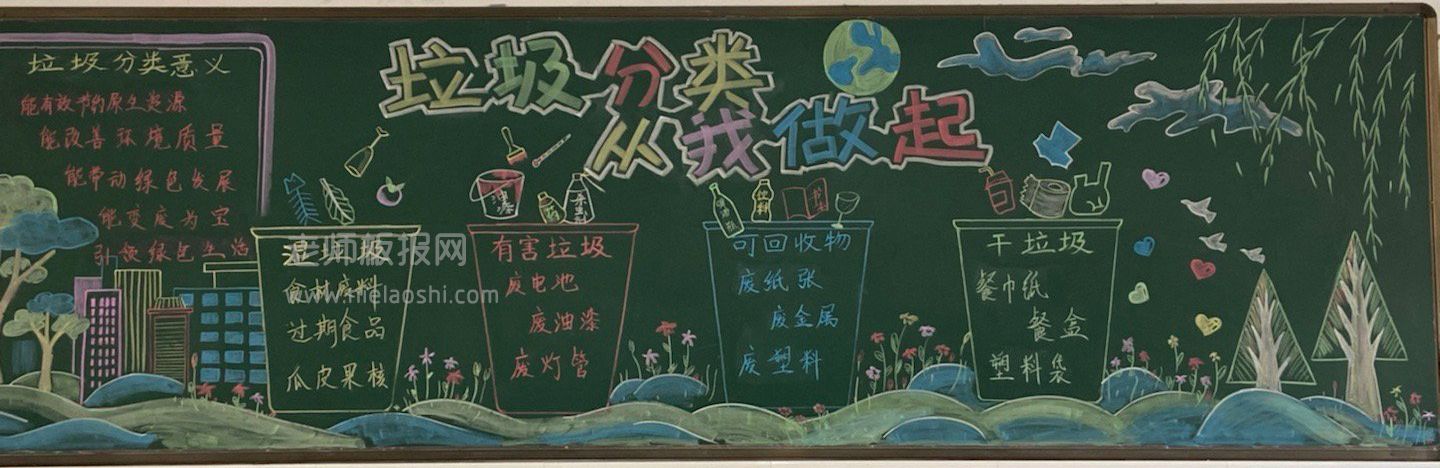 垃圾分类
从我做起
垃圾分类意义
能有效节约原生资源
能改善环境质量
能带动绿色发展
能变废为宝
引领绿色生活
湿垃圾
食材废料
过期食品
瓜皮果核
油漆
杀虫剂
有害垃圾
废电池
废油漆
废灯管
饮料
可回收物
废纸张
废金属
废塑料
干垃圾
餐巾纸
餐盒
塑料袋
老师板报网
www.melaoshi.com